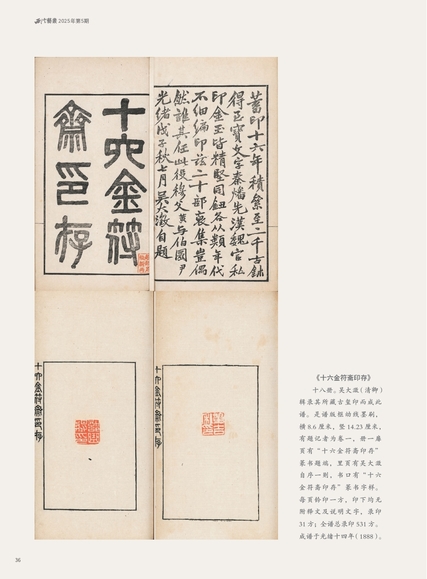 西泠藝叢 2025年第5期
十六金符
齋印存
蓄印十六年積絫至二千古鉥
得巨寶文字秦燔先漢魏官私
印金玉皆精堅同鈕各以類年代
不細編印茲二十部裒集豈偶
然誰其任此役穆父黃與伯圜尹
光緒戊子秋七月吳大澂自題
十六金符齋印存
十六金符齋印存
《十六金符斋印存》
十八册。吴大澂（清卿）
辑录其所藏古玺印而成此
谱。是谱版框幼线墨刷，
横8.6厘米，竖14.23厘米，
有题记者为卷一，册一扉
页有“十六金符斋印存”
篆书题端，里页有吴大澂
自序一则，书口有“十六
金符斋印存”篆书字样。
每页钤印一方，印下均无
附释文及说明文字，录印
31方；全谱总录印531方。
成谱于光绪十四年（1888）。
36